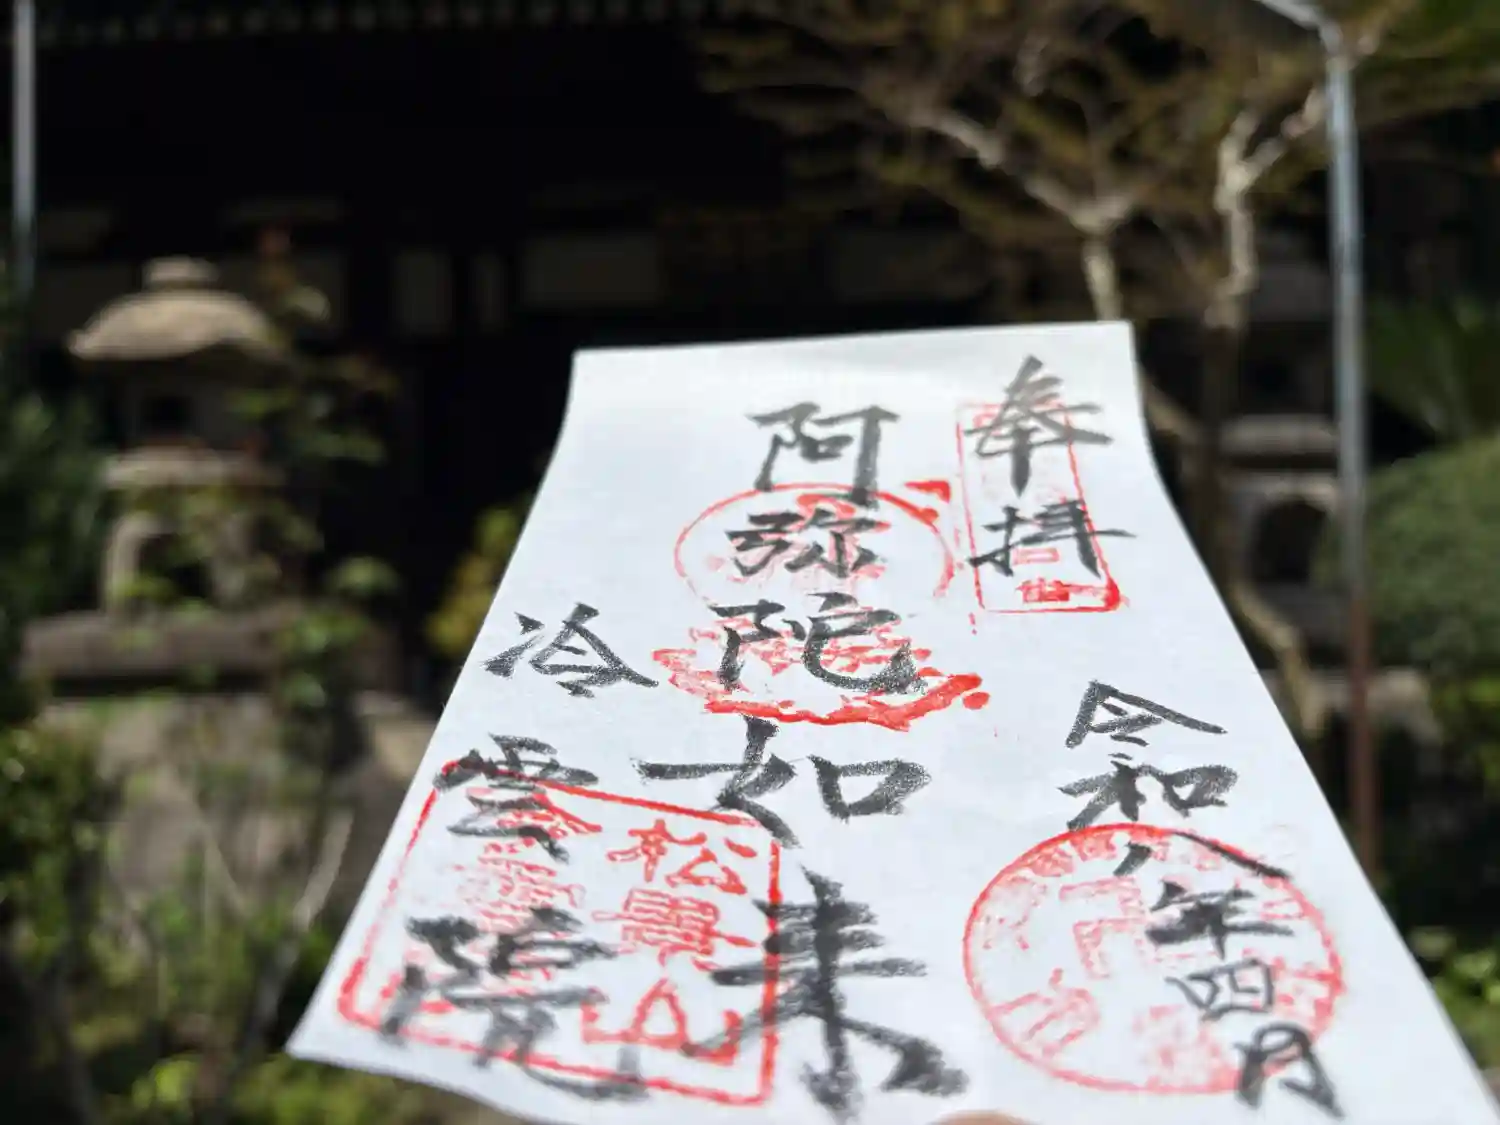 奉拝
令和八年四月
阿弥陀如来
冷雲院
松興山